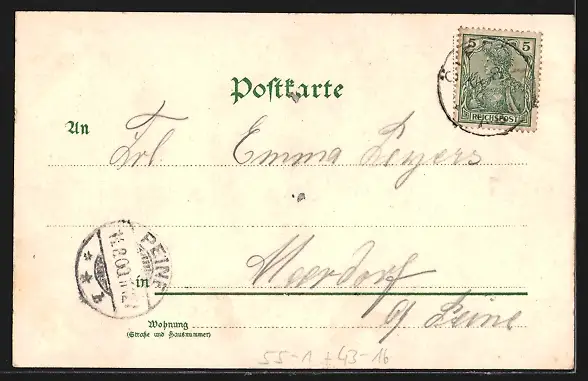 5 5
REICHSPOST
Postkarte
An
Frl Emma Beyers
PEINE
14.8.00
in
Meerdorf
b/ Peine
Wohnung
(Straße und Hausnummer)
55-1 + 43-16